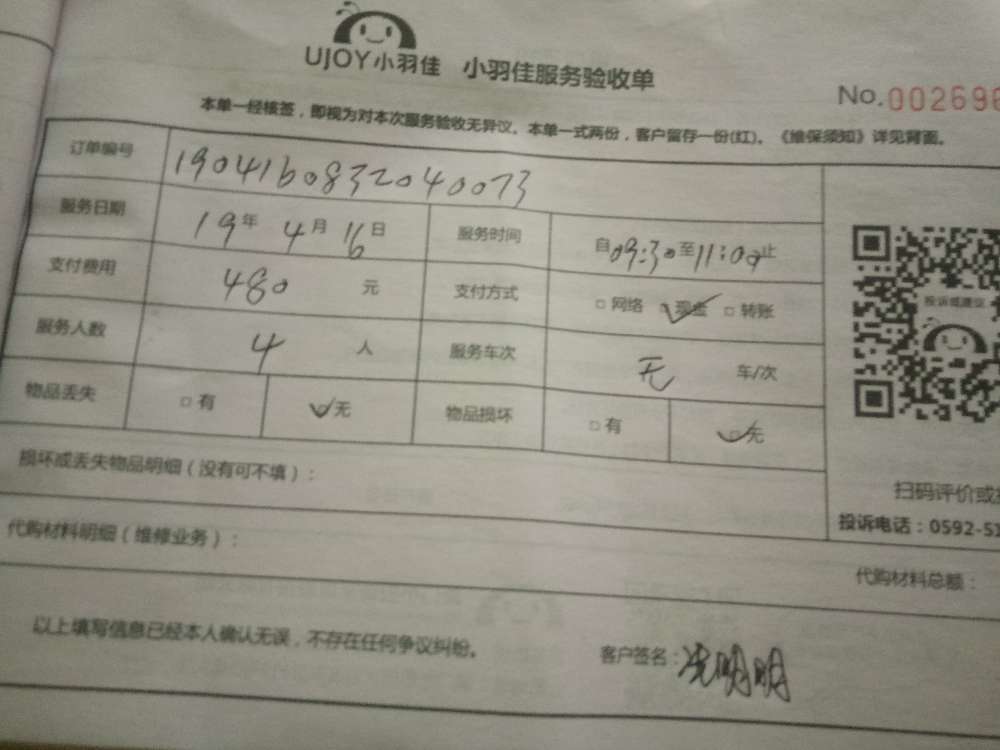 UJOY小羽佳 小羽佳服务验收单
No.002696
本单一经核签，即视为对本次服务验收无异议。本单一式两份，客户留存一份(红)。《维保须知》详见背面。
订单编号 19041608332040073
服务日期 19年 4月 16日 服务时间 自09:30至11:00止
支付费用 480 元 支付方式 □网络 ☑现金 □转账
服务人数 4 人 服务车次 无 车/次
物品丢失 □有 ☑无 物品损坏 □有 ☑无
投诉或建议
损坏或丢失物品明细（没有可不填）：
扫码评价或
投诉电话：0592-5
代购材料明细（维修业务）：
代购材料总额：
以上填写信息已经本人确认无误，不存在任何争议纠纷。
客户签名：明明